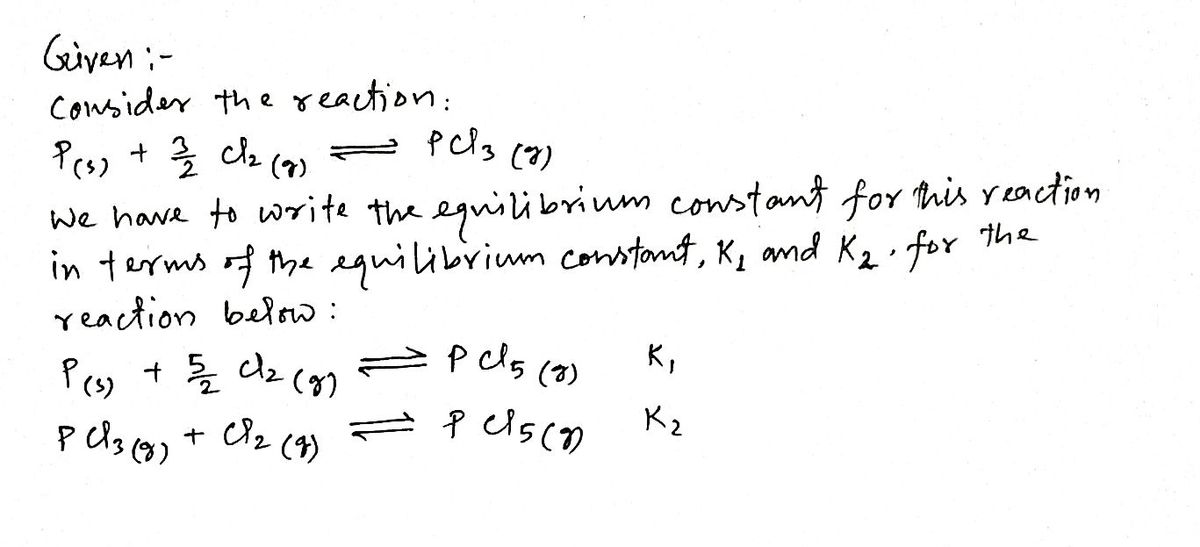 Given :-
Consider the reaction:
P(s) + 3/2 Cl2 (g) ⇌ PCl3 (g)
We have to write the equilibrium constant for this reaction
in terms of the equilibrium constant, K1 and K2, for the
reaction below :
P(s) + 5/2 Cl2 (g) ⇌ PCl5 (g) K1
PCl3 (g) + Cl2 (g) ⇌ PCl5 (g) K2